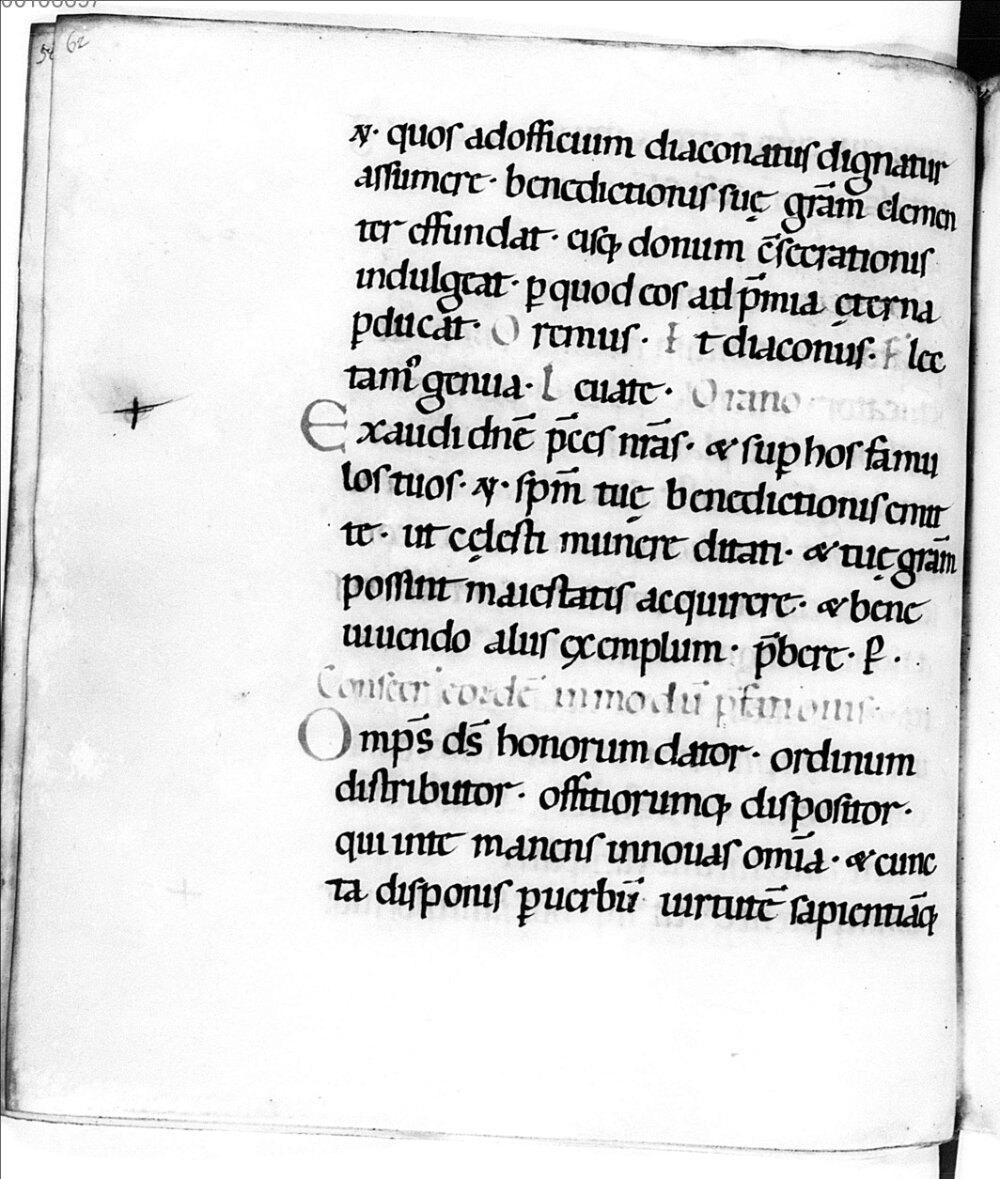 58 62
N· quos ad officium diaconatus dignatur
assumere· benedictionis suę gr̄am clemen
ter effundat· eisq; donum c̄secrationis
indulgeat· p̱ quod eos ad p̄mia ęterna
p̱ducat· Oremus· Et diaconus· Flec
tamꝰ genua· Leuate· Oratio
Exaudi dn̄e p̄ces nr̄as· & sup̱ hos famu
los tuos· N· sp̄m tuę benedictionis emit
te· ut cęlesti munere ditati· & tuę gr̄am
possint maiestatis acquirere· & bene
uiuendo aliis exemplum· p̄bere· P̱·
in modū p̄fationis·
Omp̄s ds̄ honorum dator· ordinum
distributor· offitiorumq; dispositor·
qui in te manens innouas om̄ia· & cunc
ta disponis p̱ uerbū uirtutē sapientiāq;